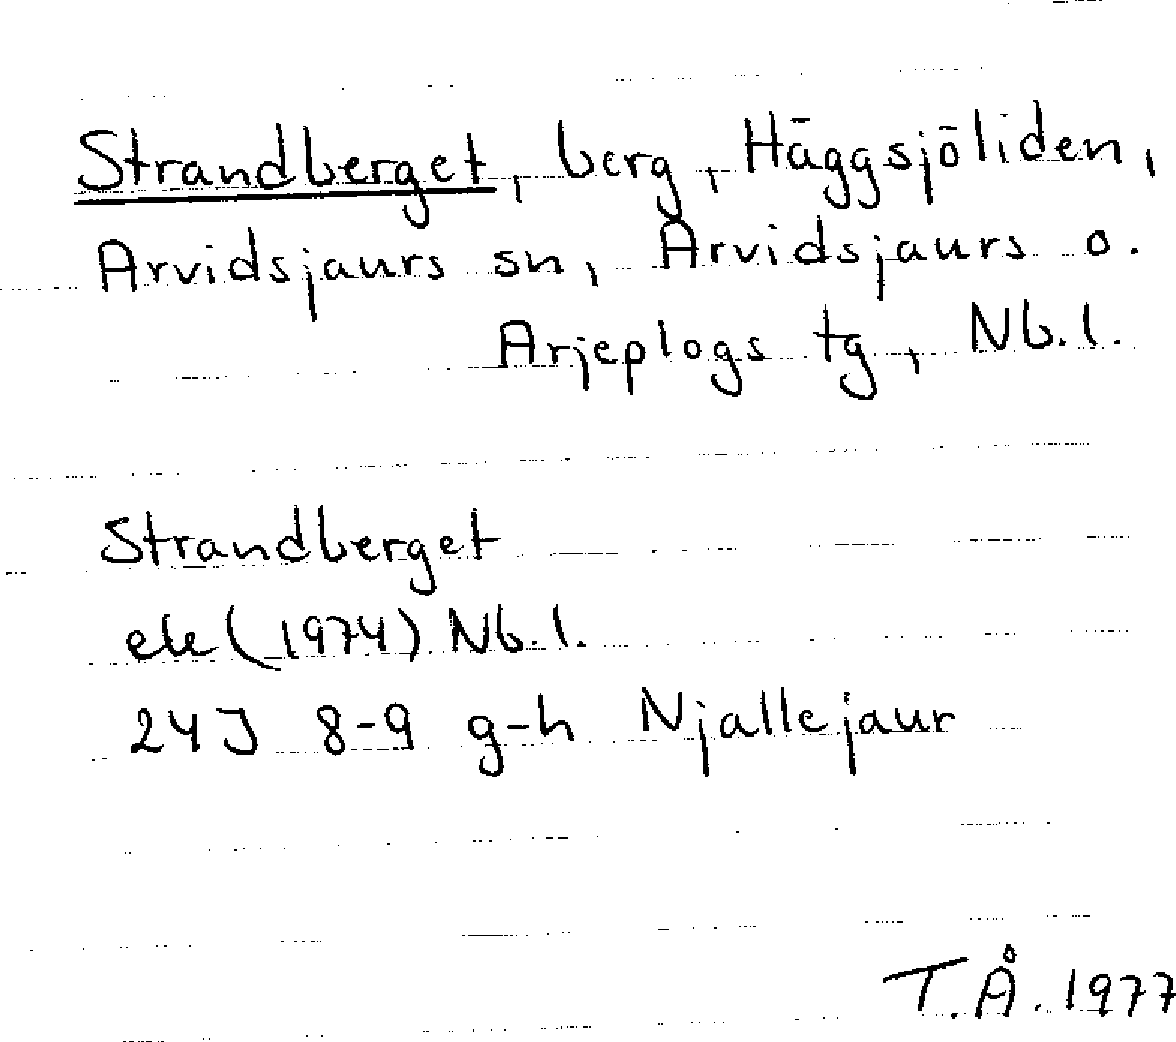 Strandberget, berg, Häggsjöliden,
Arvidsjaurs sn, Arvidsjaurs o.
Arjeplogs tg, Nb.l.
Strandberget
ek (1974) Nb.l.
24J 8-9 g-h Njallejaur
T.Å. 1977